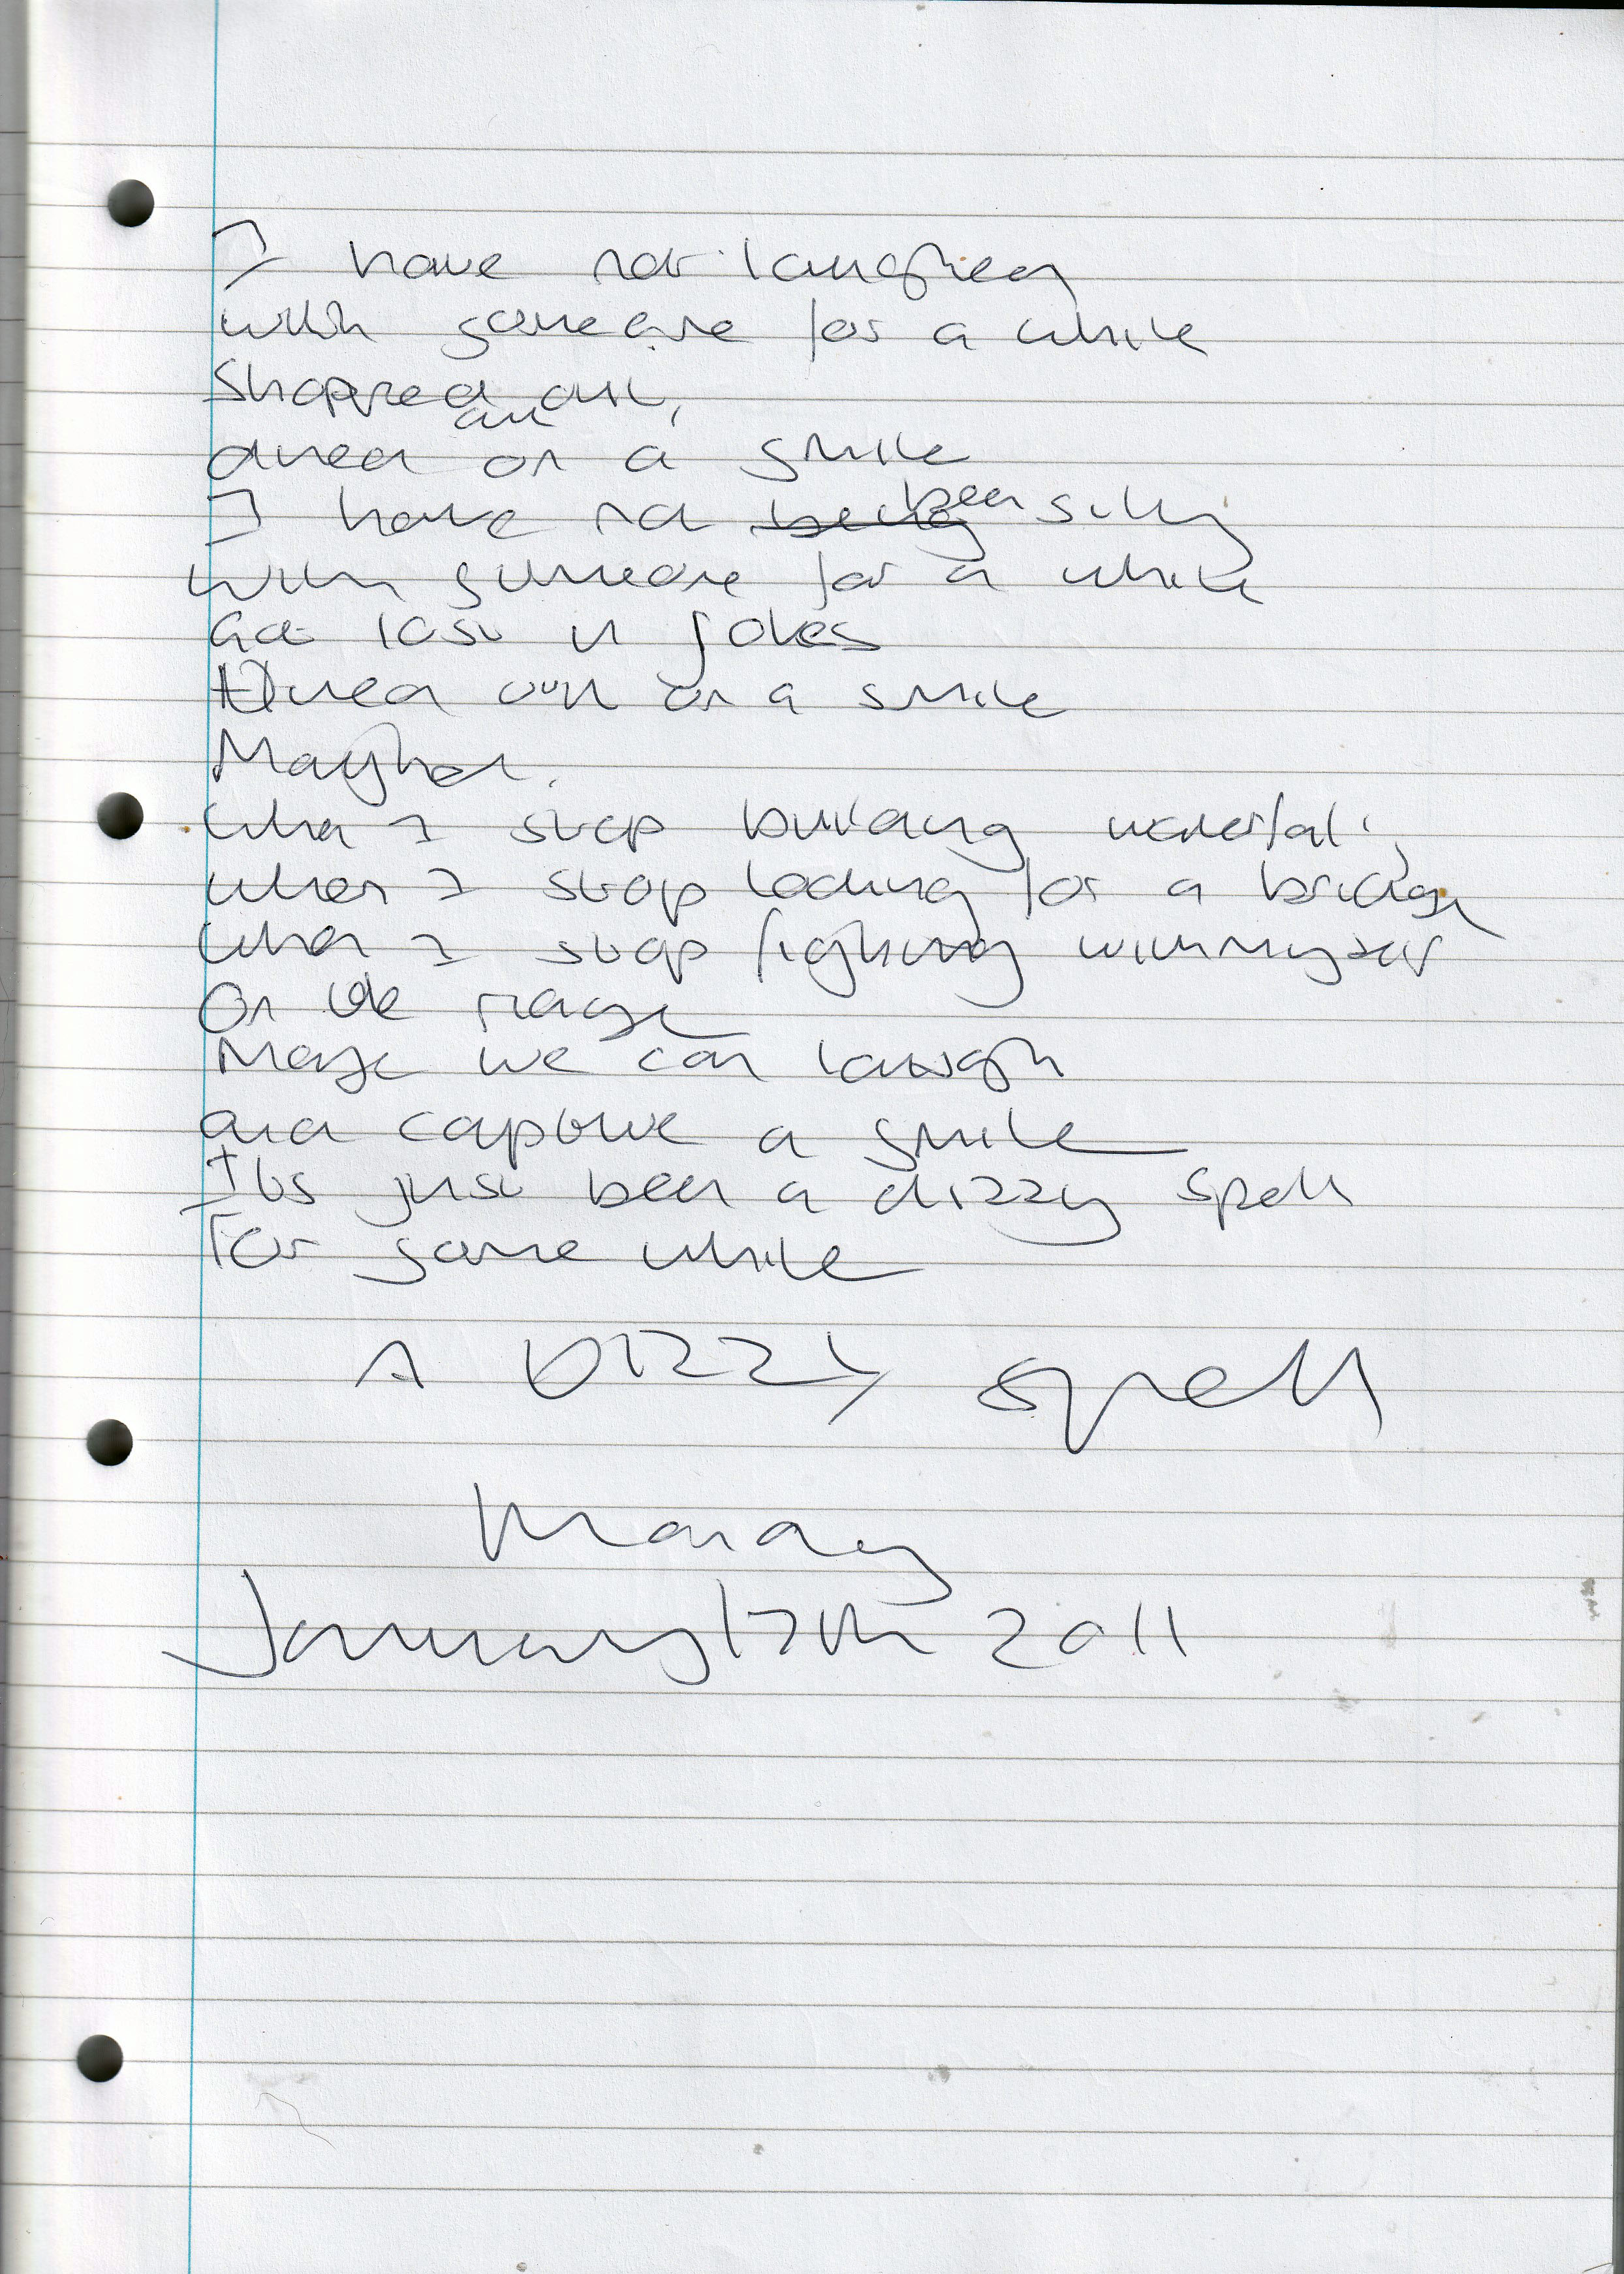 I have not laughed
with someone for a while
Stopped out,
dined out on a smile
I have not being been silly
with someone for a while
Got lost in jokes
Dined out on a smile
Maybe
when I stop building waterfalls,
when I stop looking for a bridge
when I stop fighting with myself
On the range
Maybe we can laugh
and capture a smile
Its just been a dizzy spell
For some while
A Dizzy spell
Monday
January 17th 2011